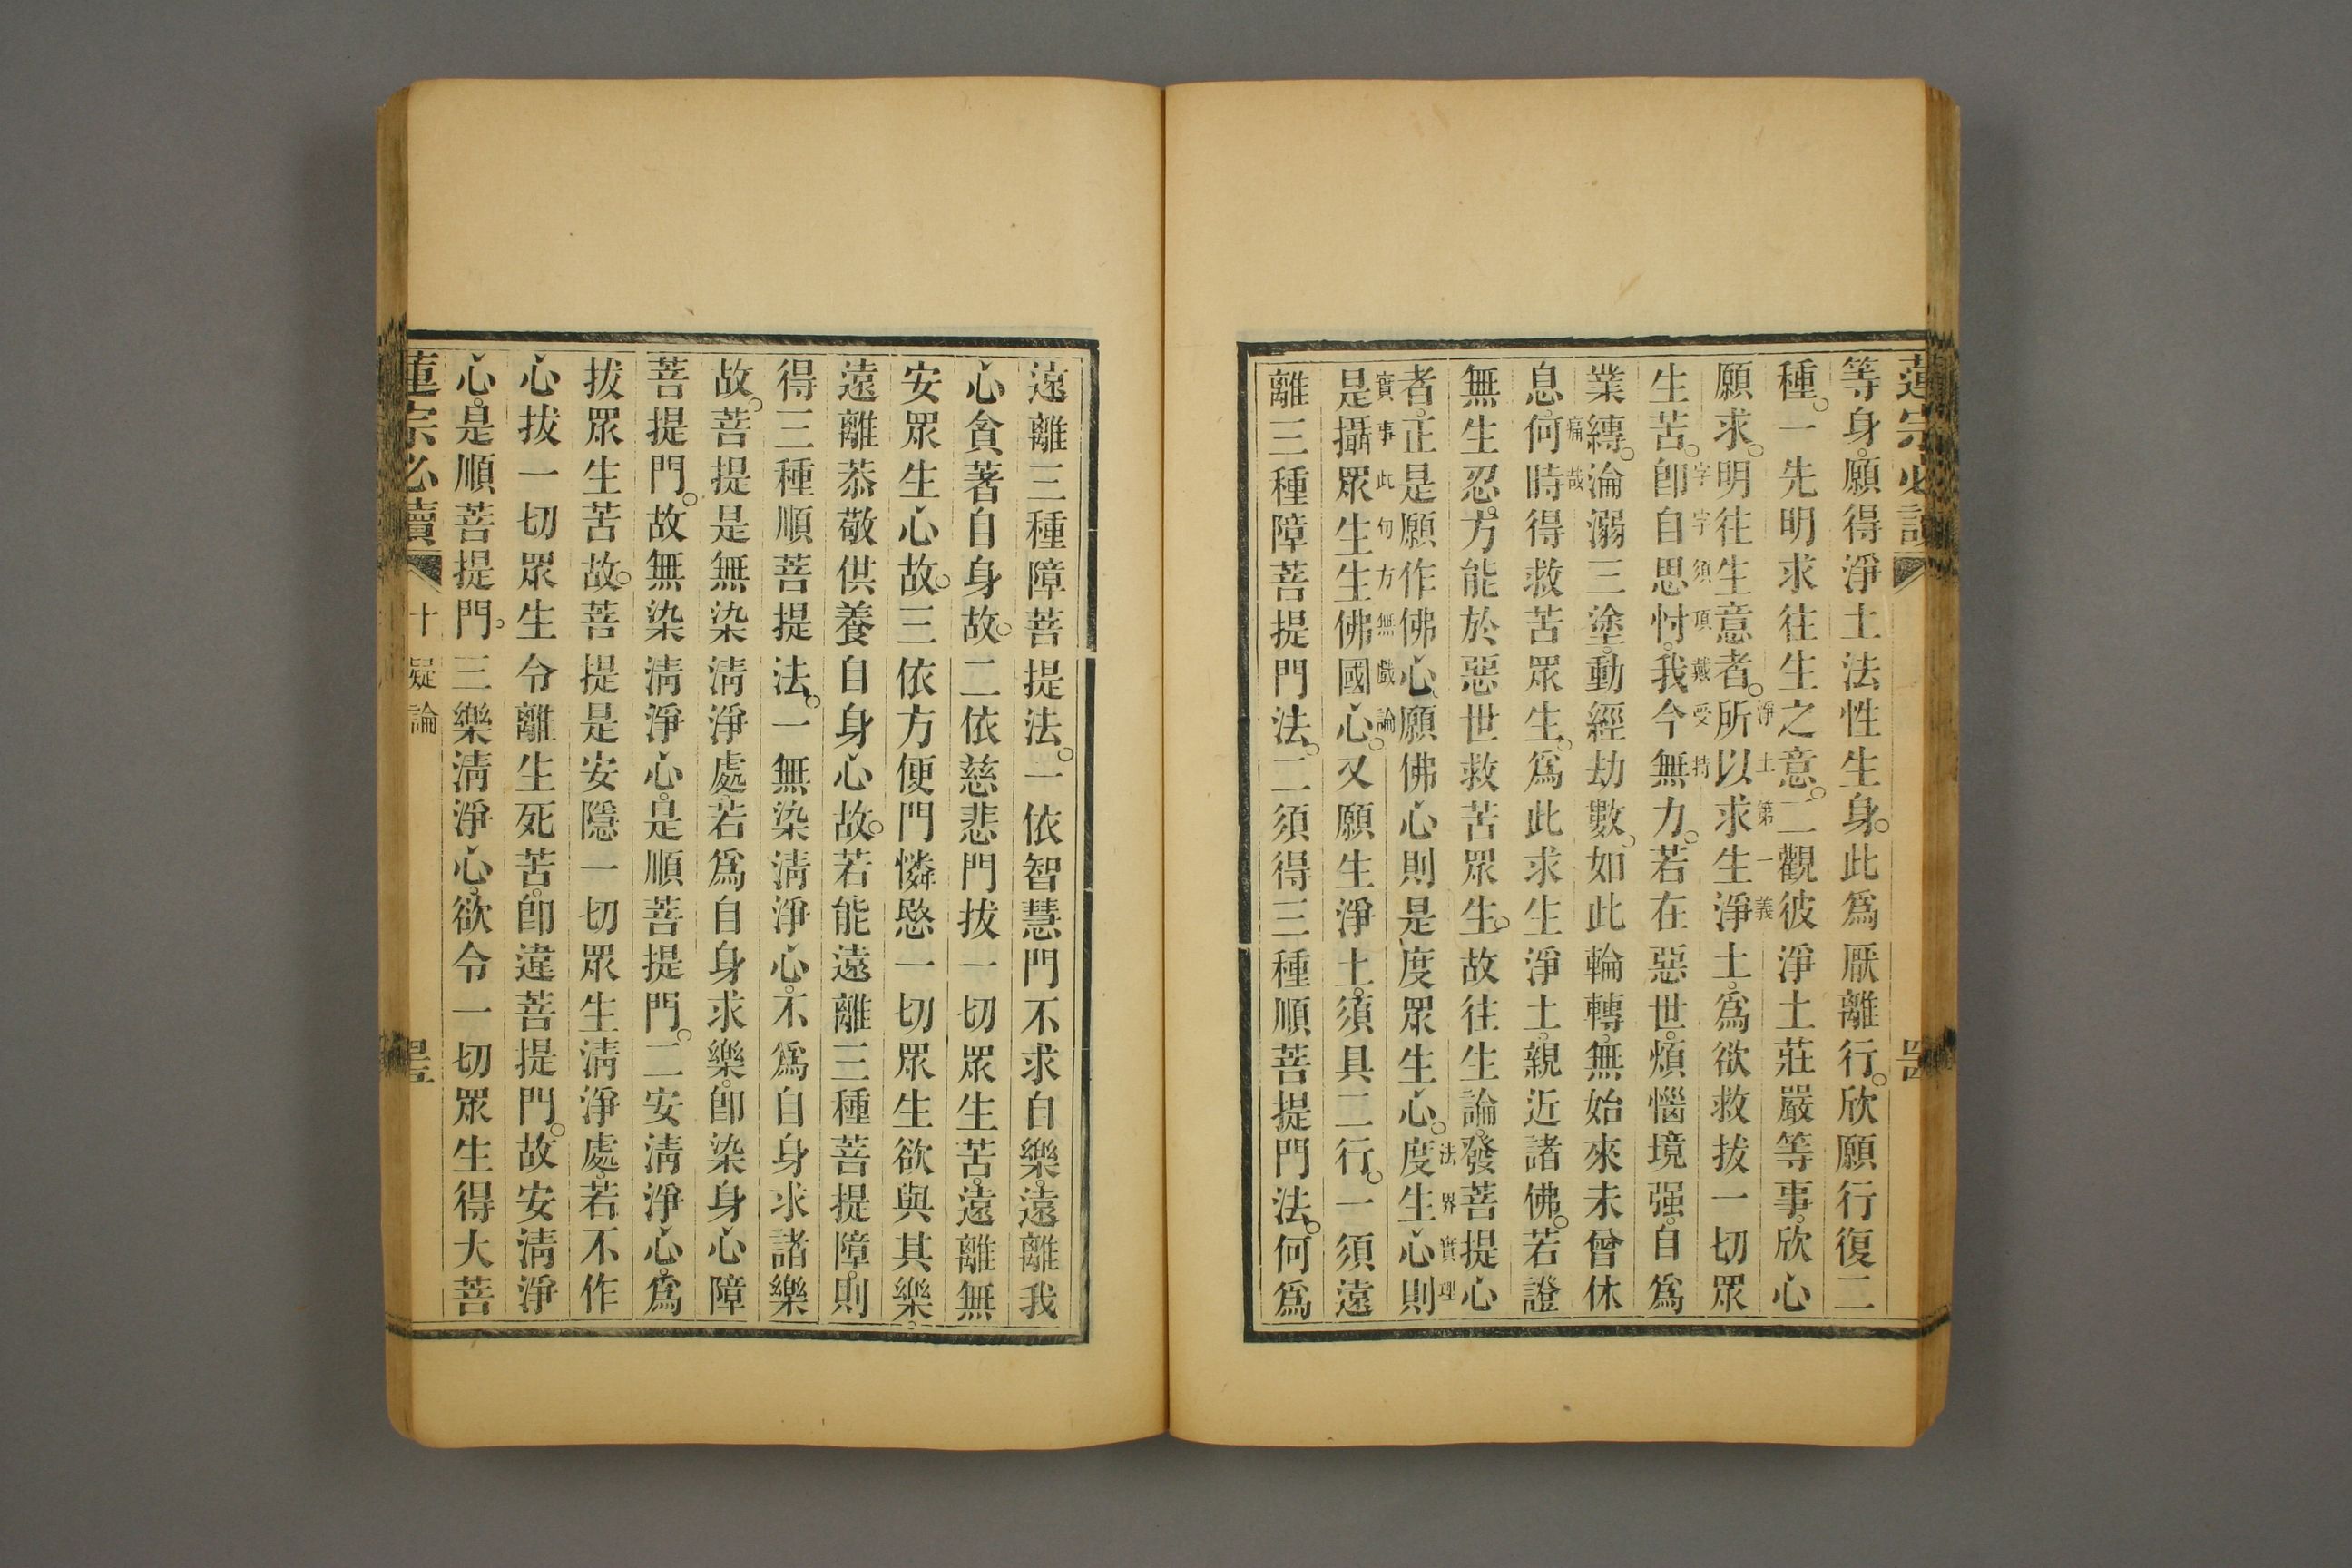 蓮宗必讀
等身。願得淨土法性生身。此爲厭離行。欣願行復二
種。一先明求往生之意。二觀彼淨土莊嚴等事。欣心
淨土第一義
願求。明往生意者。所以求生淨土。爲欲救拔一切眾
字字須頂戴受持
生苦。卽自思忖。我今無力。若在惡世。煩惱境强。自爲
業縛。淪溺三塗。動經劫數。如此輪轉。無始來未曾休
痛哉
息。何時得救苦眾生。爲此求生淨土。親近諸佛。若證
無生忍。方能於惡世救苦眾生。故往生論。發菩提心
法界實理
者。正是願作佛心。願佛心則是度眾生心。度生心則
實事此句方無戲論
是攝眾生生佛國心。又願生淨土。須具二行。一須遠
離三種障菩提門法。二須得三種順菩提門法。何爲
遠離三種障菩提法。一依智慧門不求自樂。遠離我
心貪著自身故。二依慈悲門拔一切眾生苦。遠離無
安眾生心故。三依方便門憐愍一切眾生欲與其樂。
遠離恭敬供養自身心故。若能遠離三種菩提障。則
得三種順菩提法。一無染清淨心。不爲自身求諸樂
故。菩提是無染清淨處。若爲自身求樂。卽染身心障
菩提門。故無染清淨心。是順菩提門。二安清淨心。爲
拔眾生苦故。菩提是安隱一切眾生清淨處。若不作
心拔一切眾生令離生死苦。卽違菩提門。故安清淨
心。是順菩提門。三樂清淨心。欲令一切眾生得大菩
蓮宗必讀 十疑論